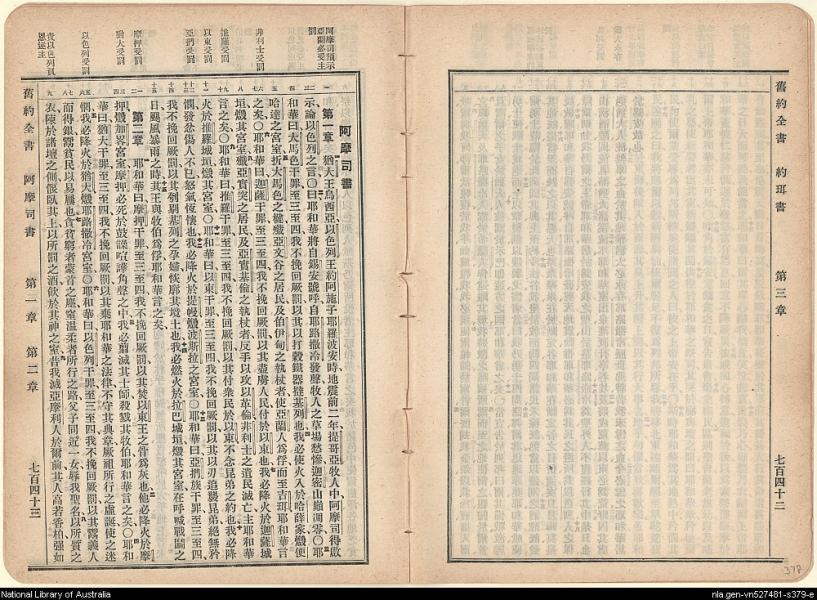 舊約全書　約珥書　第三章　七百四十二
阿摩司預示
亞蘭必受主
罰
非利士受罰
推羅受罰
以東受罰
亞捫受罰
摩押受罰
猶大受罰
以色列受罰
責以色列負
恩逆主
阿摩司書
第一章　猶大王烏西亞以色列王約阿施子耶羅波安時地震前二年提哥亞牧人中阿摩司得啟
示論以色列之言○曰耶和華將自錫安號呼自耶路撒冷發聲牧人之草場愁慘迦密山巔凋零○耶
和華曰大馬色干罪至三至四我不挽回厥罰以其以打穀鐵器撻基列也我必使火入於哈薛家燬便
哈達之宮室折大馬色之楗殲亞文谷之居民及伯伊甸之執杖者使亞蘭人為俘而至吉珥耶和華言
之矣○耶和華曰迦薩干罪至三至四我不挽回厥罰以其盡虜人民付於以東也我必降火於迦薩城
垣燬其宮室殲亞實突之居民及亞實基倫之執杖者反手以攻以革倫非利士之遺民滅亡主耶和華
言之矣○耶和華曰推羅干罪至三至四我不挽回厥罰以其付眾民於以東不念昆弟之約也我必降
火於推羅城垣燬其宮室○耶和華曰以東干罪至三至四我不挽回厥罰以其以刃追襲昆弟絕無矜
憫發忿傷人不已怒氣恆懷也我必降火於提幔燬波斯拉之宮室○耶和華曰亞捫族干罪至三至四
我不挽回厥罰以其刳剔基列之孕婦恢廓其境土也我必燃火於拉巴城垣燬其宮室在呼喊戰鬬之
日颶風暴雨之時其王與牧伯為俘耶和華言之矣
第二章　耶和華曰摩押干罪至三至四我不挽回厥罰以其焚以東王之骨為灰也他必降火於摩
押燬加畧宮室摩押必死於鼓譟喧譁角聲之中我必翦滅其士師殺戮其牧伯耶和華言之矣○耶和
華曰猶大干罪至三至四我不挽回厥罰以其棄耶和華之法律不守其典章厥祖所行之虛誕使之迷
惘我必降火於猶大燬耶路撒冷宮室○耶和華曰以色列干罪至三至四我不挽回厥罰以其鬻義人
而得銀鬻貧民以易屨也貪貧窮者蒙首之塵窒温柔者所行之路父子同近一女辱我聖名以所質之
衣陳於諸壇之側偃臥其上以所罰之酒飲於其神之室昔我滅亞摩利人於爾前其人高若香柏强如
舊約全書　阿摩司書　第一章　第二章　七百四十三
378
National Library of Australia
nla.gen-vn527481-s379-e